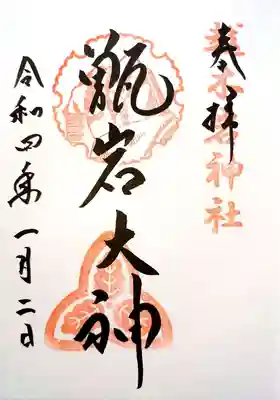 奉拝
甑岩大神
令和四年一月二日